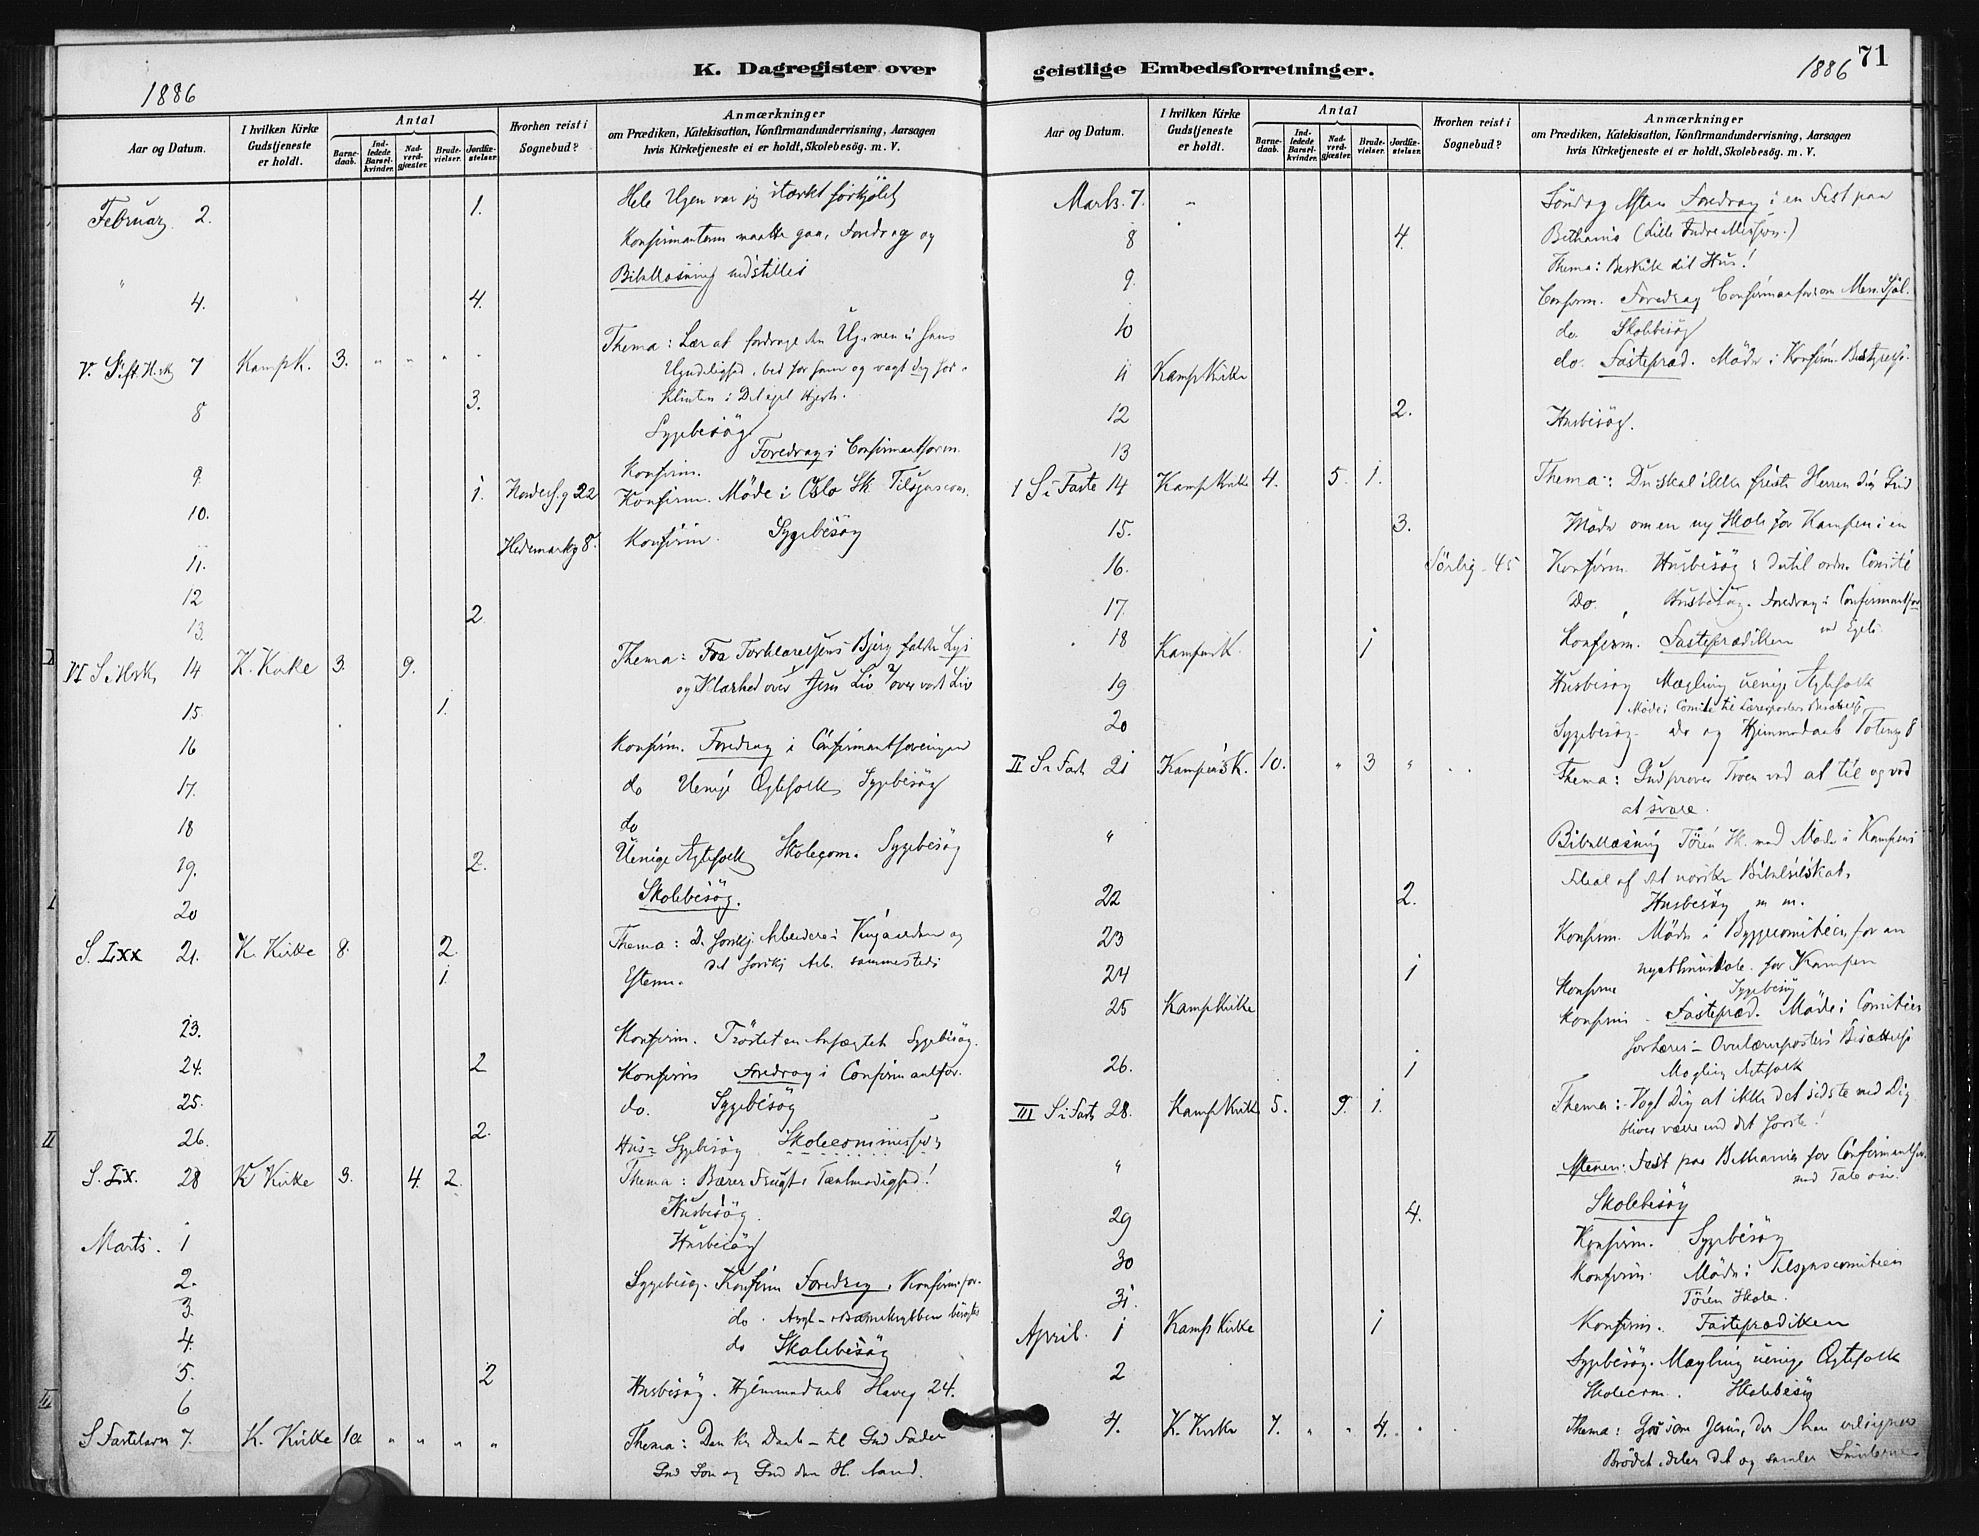 K. Dagregister over
1886
Aar og Datum.
I hvilken Kirke Gudstjeneste er holdt.
Antal
Barnedaab.
Indledede Barselkvinder.
Nadverdgjæster.
Brudevielser.
Jordfæstelser.
Hvorhen reist i Sognebud?
Anmærkninger
om Prædiken, Katekisation, Konfirmandundervisning, Aarsagen
hvis Kirketjeneste ei er holdt, Skolebesög. m. V.
Februar 2. 1. Hele Ugen var jeg stærkt forkjølet
Konfirmanterne maatte gaa, Foredrag og
Bibellæsning udstilles
" 4. 4.
V. S. eft. H. 3 K. 7 Kamp K. 3. " " " " Thema: Lær at fordrage den
Ugudelighed, bed for ham og vogt dig for
Klinten i Dit eget Hjerte.
8 3. Sygebesög
9. Konfirm. Foredrag i Confirmantforen.
10. 1. 22 Konfirm. Möde i Oslo Sk. Tilsynscom.
11. Hedemarkg 8. Konfirm. Sygebesög
12
13. 2
VI S. 14 K. Kirke 3. 9. Thema: Fra Forklarelsens Bjerg falder Lys
og Klarhed over Jesu Liv & over vort Liv
15. 1.
16 Konfirm. Foredrag i Confirmantforeningen
17. do Uenige Ægtefolk Sygebesög
18 do
19. 2. Uenige Ægtefolk Skolecom. Sygebesög
20 Skolebesög.
S. LXX 21. K. Kirke 8. 2. Thema: D. forskj. Arbeidere i Vingaarden og
det forskj. Arb. sammesteds
1. Efterm.
23. Konfirm. Tröstet en Anfægtet Sygebesög.
24. 2 Konfirm Foredrag i Confirmantfor.
25. do. Sygebesög
26. 2. Hus- Sygebesög Skolecommission
S. LX. 28 K Kirke 3. 4. 2. Thema: Bærer Frugt i Taalmodighed!
Husbesög.
Marts. 1 Husbesög
2. Sygebesög. Konfirm Foredrag i Konfirm.for.
3. do. Asyl- Barnekrybben besögtes
4. do Skolebesög
5. 2
6 Husbesög. Hjemmedaab Haveg 24.
S. Fastelavn 7. K. Kirke 10 " " " " Thema: Den Kr. Daab – til Gud Fader
Gud Sön og Gud den H. Aand.
geistlige Embedsforretninger.
1886 71
Aar og Datum.
I hvilken Kirke Gudstjeneste er holdt.
Antal
Barnedaab.
Indledede Barselkvinder.
Nadverdgjæster.
Brudevielser.
Jordfæstelser.
Hvorhen reist i Sognebud?
Anmærkninger
om Prædiken, Katekisation, Konfirmandundervisning, Aarsagen
hvis Kirketjeneste ei er holdt, Skolebesög. m. V.
Marts. 7. " Söndag Aften Foredrag i en Fest paa
Bethania (lille Indre Mission.)
Thema: Beskik dit Hus!
8 4.
9. Confirm. Foredrag Confirmantfor. om Men. Sjæl.
10 do. Skolebesög
11 Kamp Kirke do. Fastepræd. Möde i Konfirm. Bestyrelse.
12 2. Husbesög.
13
1 S i Faste 14 Kamp Kirke 4. 5. 1. Thema: Du skal ikke friste Herren din Gud
15. 3. Möde om en ny Skole for Kampen i en
16. Sörbyg. 45 Konfirm. Husbesög dertil ordn. Comité
17. Do. Husbesög. Foredrag i Confirmantfor
18 Kampens K. 1 Konfirm. Fasteprædiken
19 Husbesög Mægling uenige Ægtefolk
Möde i Comite til Lærerposters Besættelse
20 Sygebesög. do og Hjemmedaab Toteng 8
II S i Fast. 21 Kampens K. 10. " 3 " Thema: Gud pröver Troen ved at tie og ved
at svare.
" Bibellæsning Töien Sk. med Möde i Kampens
Filial af det norske Bibelselskab.
22 2. Husbesög m m.
23 Konfirm. Möde i Byggecomiteen for en
24 1 ny Skole for Kampen
Konfirm Sygebesög
25 Kamp Kirke Konfirm. Fastepræd. Möde i Comiteen
for Lærer- Overlærerposters Besættelse
26. 1 Mægling Ægtefolk
III S i Fast 28. Kamp Kirke 5. 9. 1. Thema: Vogt Dig at ikke det sidste med Dig
bliver værre end det förste!
" Aftenen: Fest paa Bethania for Confirmantfor.
med Tale
29 4. Skolebesög
30 Konfirm. Sygebesög
31. Konfirm. Möde i Tilsynscomiteen
Töien Skole.
April. 1 Kamp Kirke 1 Konfirm. Fasteprædiken
2 Sygebesög. Mægling uenige Ægtefolk
Skolecom. Skolebesög
4. K. Kirke 7. " " 4. Thema: Gör som Jesus, der han velsigner
Brödet, deler det og samler Smulerne
I
II